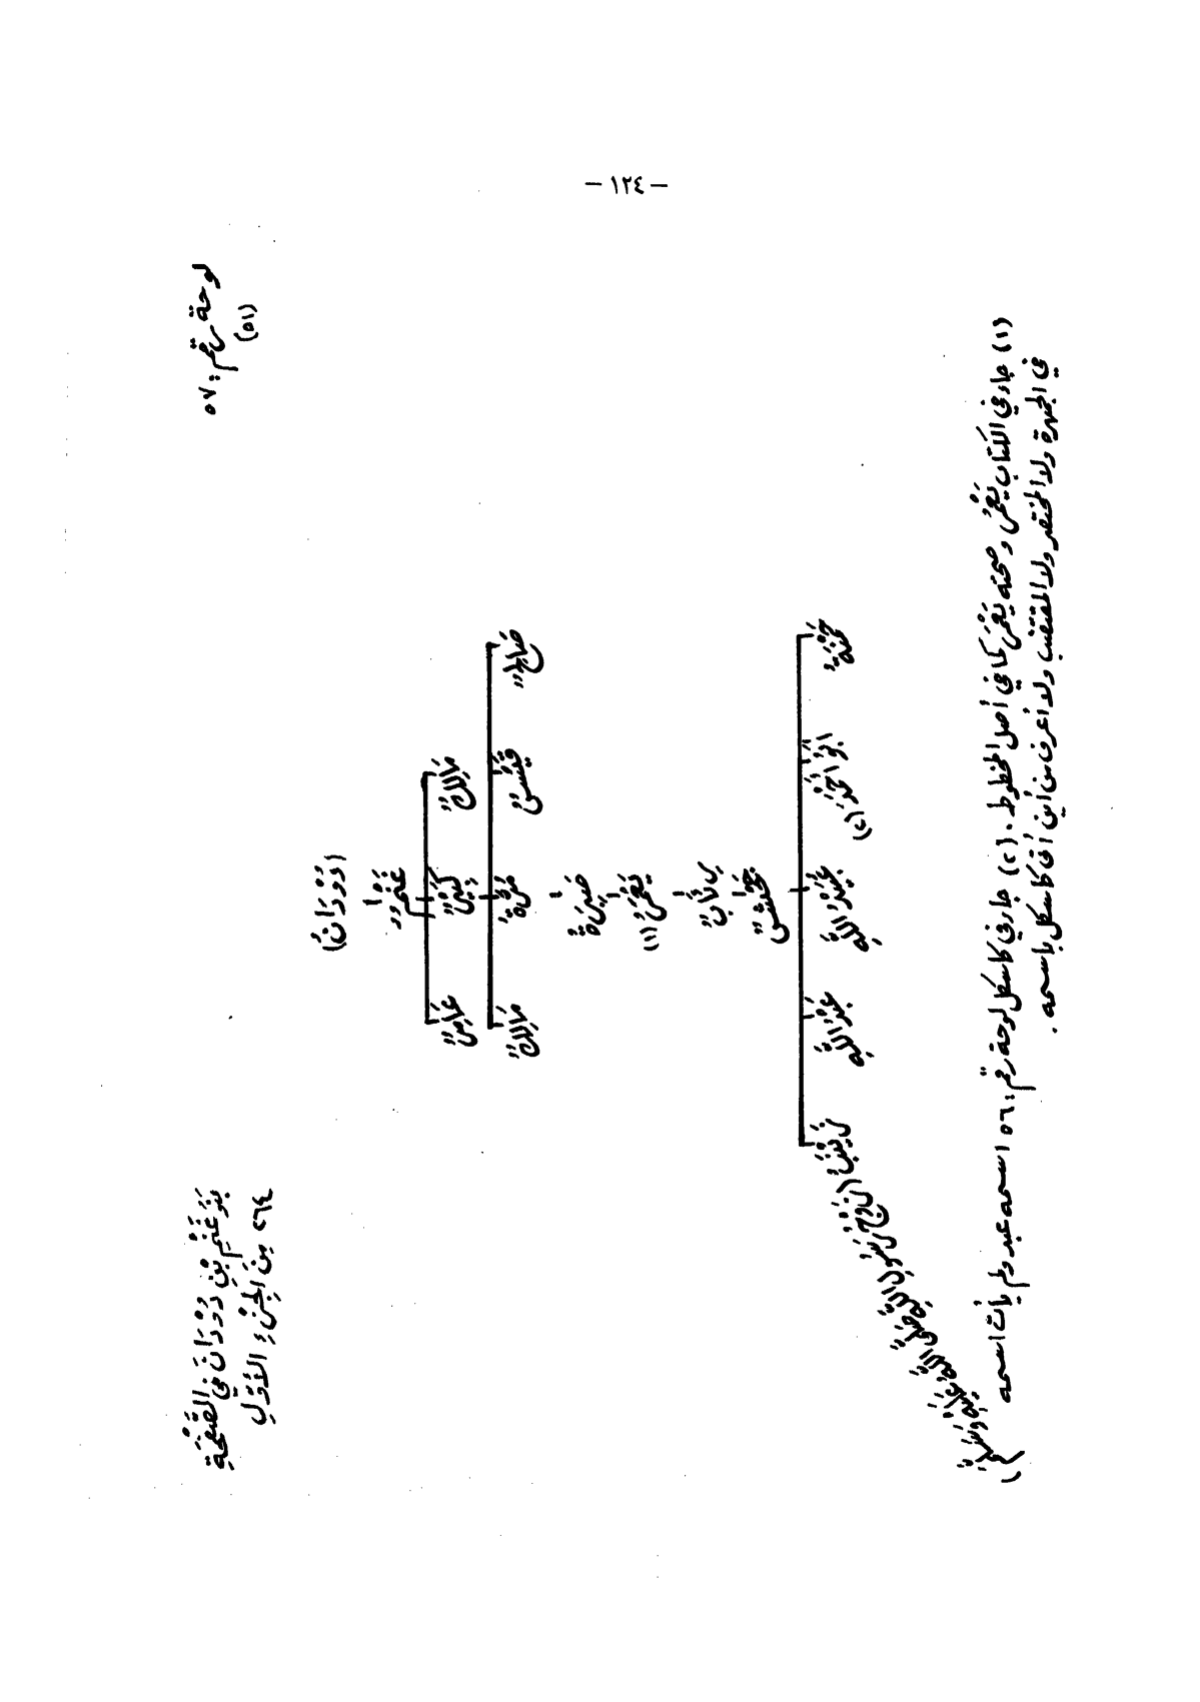 - ١٢٤ -
لوحة رقم: ٥٧
(٥١)
بَنُو غَنْمِ بْنِ دُوْدَانَ فِي الصَّفْحَةِ
٢٦٤ مِنَ الْجُزْءِ الأَوَّلِ
(دُوْدَانُ)
غَنْمُ
مَالِكٌ
كَبِيْرٌ
عَامِرٌ
ضَابِحٌ
قَيْسٌ
مُرَّةُ
مَالِكٌ
صَبِرَةُ
يَعْمَرُ (١)
رِئَابٌ
جَحْشٌ
حَمْنَةُ
أَبُو أَحْمَدَ (٢)
عُبَيْدُ اللَّهِ
عَبْدُ اللَّهِ
زَيْنَبُ (زَوْجُ رَسُوْلِ اللَّهِ صَلَّى اللَّهُ عَلَيْهِ وَسَلَّمَ)
(١) جاء في الكتاب يَعْمُر وصحته يَعْمَر كما في أصل المخطوط. (٢) جاء في كاسكل لوحة رقم: ٥٦ اسمه عبد ولم يأت اسمه
في الجمهرة ولا المختصر ولا المقتضب ولا أعرف من أين أتى كاسكل باسمه.